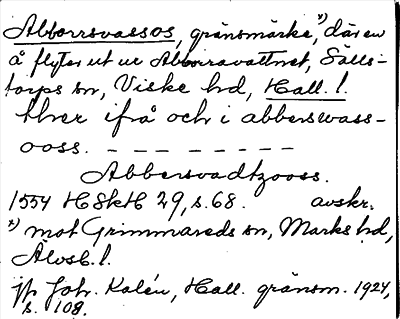 Abborrsvassos, gränsmärke,*) där en
å flyter ut ur Abborravattnet, Sälls-
torps sn, Viske hd, Hall. l.
thær ifrå och i abberswass-
ooss. - - - - - - - -
Abbersvadtzooss.
1554 HSkH 29, s. 68. avskr.
*) mot Grimmareds sn, Marks hd,
Älvsb. l.
jfr Joh. Kalén, Hall. gränsm. 1924,
s. 108.